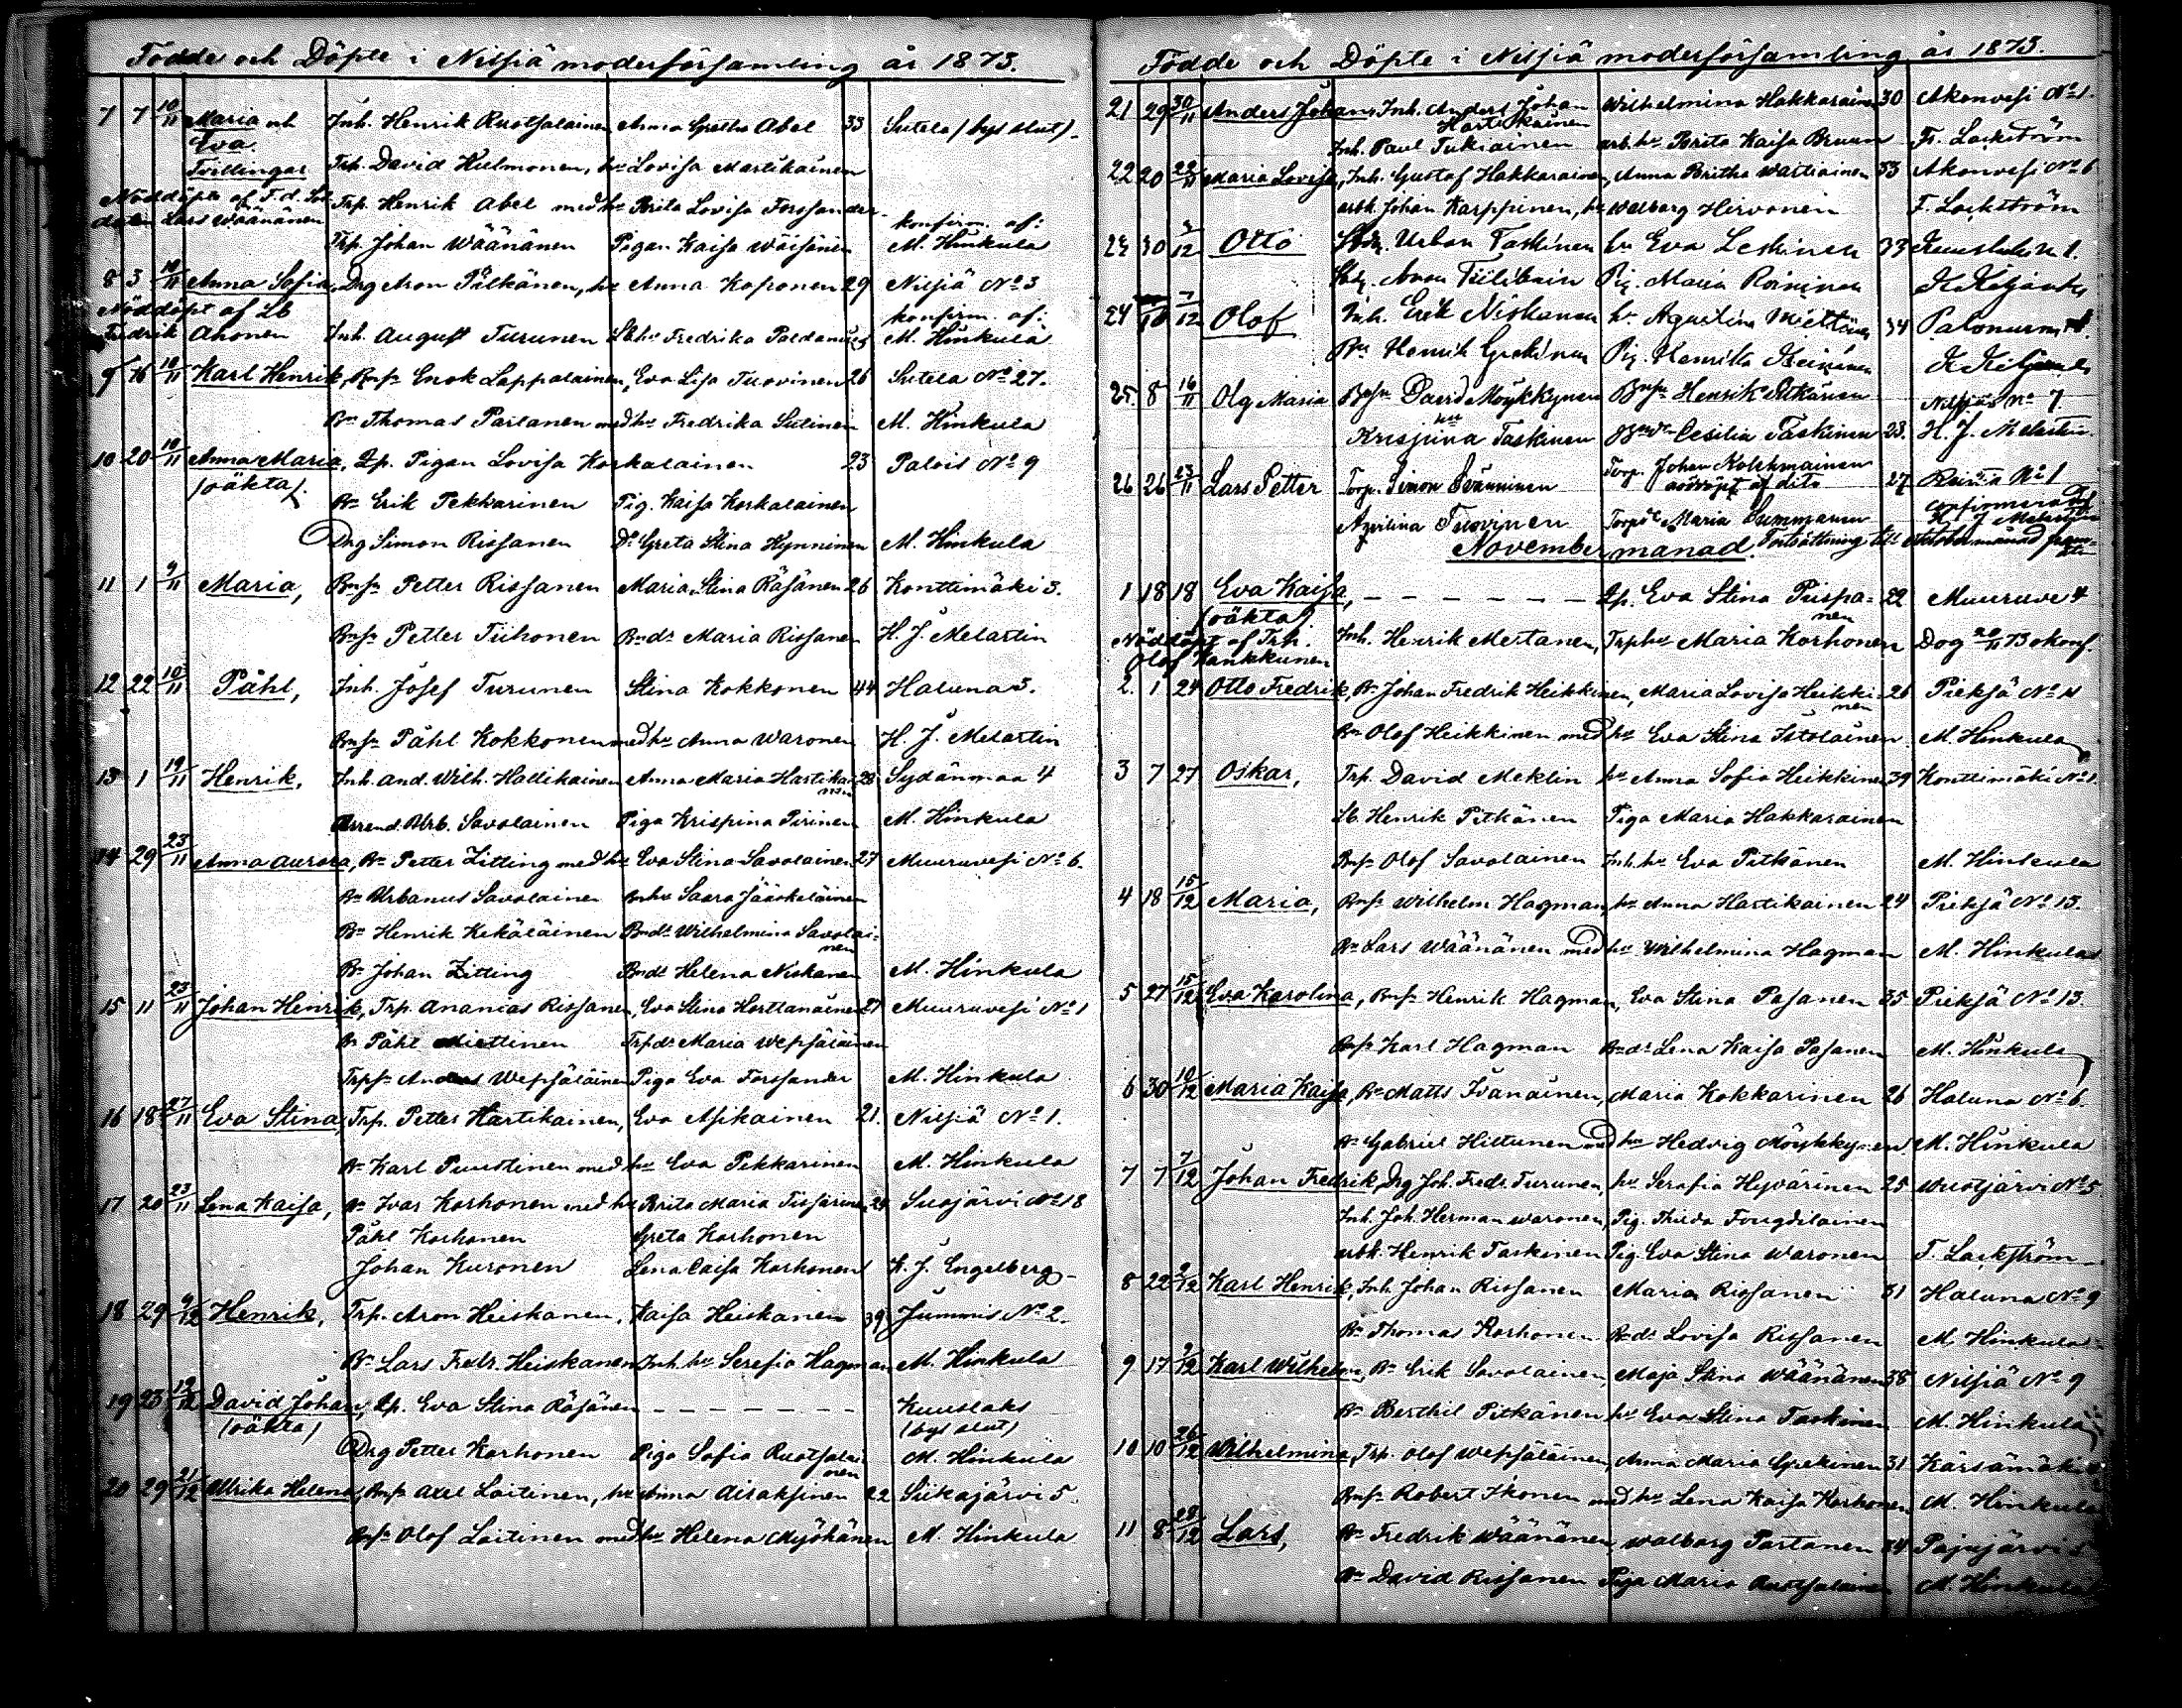 Födde och Döpte i Nilsiä moderförsamling år 1873.
7 7 10/11 Maria och Inh. Henrik Ruotsalainen Anna Greta Abel 33 Sutela (bys slut).
Eva
Tvillingar Trp. David Hulmonen, hu Lovisa Martikainen
Nöddöpte af F.d. Sol- Trp. Henrik Abel med hu Brita Lovisa Forssander konfirm. af:
daten Lars Wäänänen
Trp. Johan Wäänänen Pigan Kaisa Wäisänen M. Hinkula
8 3 10/11 Anna Sofia, Drg Aron Pälkänen, hu Anna Koponen 29 Nilsiä No 3
Nöddöpt af Lb konfirm. af:
Fredrik Ahonen Inh. August Turunen Lbhu Fredrika Paldanius M. Hinkula
9 16 10/11 Karl Henrik, Bnsn Enok Lappalainen, Eva Lisa Tuovinen 26 Sutela No 27.
Bn Thomas Partanen med hu Fredrika Sutinen M. Hinkula
10 20 10/11 Anna Maria, Lp. Pigan Lovisa Korkalainen 23 Palois No 9
(oäkta). Bn Erik Pekkarinen Pig. Kaisa Korkalainen
Drg Simon Rissanen Do Greta Stina Hynninen M. Hinkula
11 1 9/11 Maria, Bnsn Petter Rissanen Maria Stina Räsänen 26 Konttimäki 3.
Bnsn Petter Tiihonen Bndr Maria Rissanen H. J. Melartin
12 22 10/11 Påhl, Inh. Josef Turunen Stina Kokkonen 44 Haluna 3.
Bnsn Påhl Kokkonen med hu Anna Waronen H. J. Melartin
13 1 19/11 Henrik, Inh. And. Wilh. Hallikainen Anna Maria Hartikainen 28 Sydänmaa 4
Arrend. Urb. Savolainen Piga Krispina Pirinen M. Hinkula
14 29 23/11 Anna Aurora, Bn Petter Zitting med hu Eva Stina Savolainen 27 Muuruvesi No 6.
Bn Urbanus Savolainen Bnhu Saara Jääskeläinen
Bn Henrik Kekäläinen Bndr Wilhelmina Savolainen
Bn Johan Zitting Bndr Helena Niskanen M. Hinkula
15 11 23/11 Johan Henrik, Trp. Ananias Rissanen, Eva Stina Horttanainen 27 Muuruvesi No 1
Bn Påhl Miettinen Trpdr Maria Wepsäläinen
Trpsn Anders Wepsäläinen Piga Eva Forssander M. Hinkula
16 18 27/11 Eva Stina, Trp. Petter Hartikainen, Eva Asikainen 21. Nilsiä No 1.
Bn Karl Puustinen med hu Eva Pekkarinen M. Hinkula
17 20 23/11 Lena Kaisa, Bn Ivar Korhonen med hu Brita Maria Tissarinen 24 Suojärvi No 18
Påhl Korhonen Greta Korhonen
Johan Kuronen Lena Caisa Korhonen K. J. Engelberg
18 29 9/12 Henrik, Trp. Aron Heiskanen, Kaisa Heiskanen 39 Jumis No 2.
Bn Lars Fredr. Heiskanen Inh. hu Serefia Hagman M. Hinkula
19 23 19/12 David Johan, Lp. Eva Stina Räsänen Kuuslaks
(oäkta) (bys slut)
Drg Petter Korhonen Piga Sofia Ruotsalainen M. Hinkula
20 29 21/12 Ulrika Helena, Bnsn Axel Laitinen, hu Anna Airaksinen 22 Siikajärvi 5.
Bnsn Olof Laitinen med hu Helena Myöhänen M. Hinkula
Födde och Döpte i Nilsiä moderförsamling år 1873.
21 29 30/11 Anders Johan, Inh. Anders Johan Hartikainen Wilhelmina Hakkarainen 30 Akonvesi No 1.
Inh. Paul Tukiainen arb. hu Brita Kaisa Bruun F. Lackström
22 20 22/11 Maria Lovisa, Inh. Gustaf Hakkarainen, Anna Britha Wartiainen 33 Akonvesi No 6
arbk. Johan Karppinen, hu Walborg Hirvonen F. Lackström
23 30 12 Otto Urban Taskinen hu Eva Leskinen 33 1.
Pig. Maria Roininen
24 7/12 Olof Inh. Erik Niskanen hu Agustina Miettinen 34
Pig. Henrika
25. 8 16/11 Olg Maria Bnsn David Möykkynen Bnsn Henrik Pitkänen Nilsiä No 7
Krispina Taskinen Cesilia Taskinen 23. H. J. Melartin
26 26 23/11 Lars Petter Torp. Simon Torp. Johan Kolehmainen 27 No 1
nöddöpt af dito
Aprilina Tuovinen Maria Summanen H. J. Melartin
November manad. Fortsättning
1 18 18 Eva Kaisa, Lp. Eva Stina Piispanen 22 Muuruve 4
(oäkta)
Nöddöpt af Trh. Inh. Henrik Mertanen, Trphu Maria Korhonen Dog 20/11 73 okonf.
Olof Kankkunen
2. 1 24 Otto Fredrik, Bn Johan Fredrik Heikkinen, Maria Lovisa Heikkinen 26 Pieksä No 4
Bn Olof Heikkinen med hu Eva Stina M. Hinkula
3 7 27 Oskar, Trp. David Meklin hu Anna Sofia Heikkinen 39 Konttimäki No 1.
Lb. Henrik Pitkänen Piga Maria Hakkarainen
Bnsn Olof Savolainen Inh. hu Eva Pitkänen M. Hinkula
4 18 15/12 Maria, Bnsn Wilhelm Hagman, hu Anna Hartikainen 24 Pieksä No 13.
Bn Lars Wäänänen med hu Wilhelmina Hagman M. Hinkula
5 27 15/12 Eva Karolina, Bnsn Henrik Hagman, Eva Stina Pasanen 35 Pieksä No 13.
Bnsn Karl Hagman Bndr Lena Kaisa Pasanen M. Hinkula
6 30 10/12 Maria Kaisa, Bn Matts Ivanainen, Maria Kokkarinen 26 Haluna No 6.
Bn Gabriel Hiltunen med hu Hedvig Möykkynen M. Hinkula
7 7 7/12 Johan Fredrik, Drg Joh. Fredr. Turunen, hu Serafia Hyvärinen 25 Wuotjärvi No 5
Inh. Joh. Herman Waronen, Pig. Thilda Fougdilainen
arbk. Henrik Taskinen Pig. Eva Stina Waronen F. Lackström
8 22 9/12 Karl Henrik, Inh. Johan Rissanen Maria Rissanen 31 Haluna No 9
Bn Thomas Korhonen Bndr Lovisa Rissanen M. Hinkula
9 17 9/12 Karl Wilhelm, Bn Erik Savolainen, Maja Stina Wäänänen 38 Nilsiä No 9
Bn Berthil Pitkänen hu Eva Stina Taskinen M. Hinkula
10 10 26/12 Wilhelmina, Trp. Olof Wepsäläinen, Anna Maria Grekinen 31 Kärsämäki
Bnsn Robert Ikonen med hu Lena Kaisa Korhonen M. Hinkula
11 8 28/12 Lars, Bn Fredrik Wäänänen, Walborg Partanen 34 Pajujärvi 5
Bn David Rissanen Piga Maria Ruotsalainen M. Hinkula